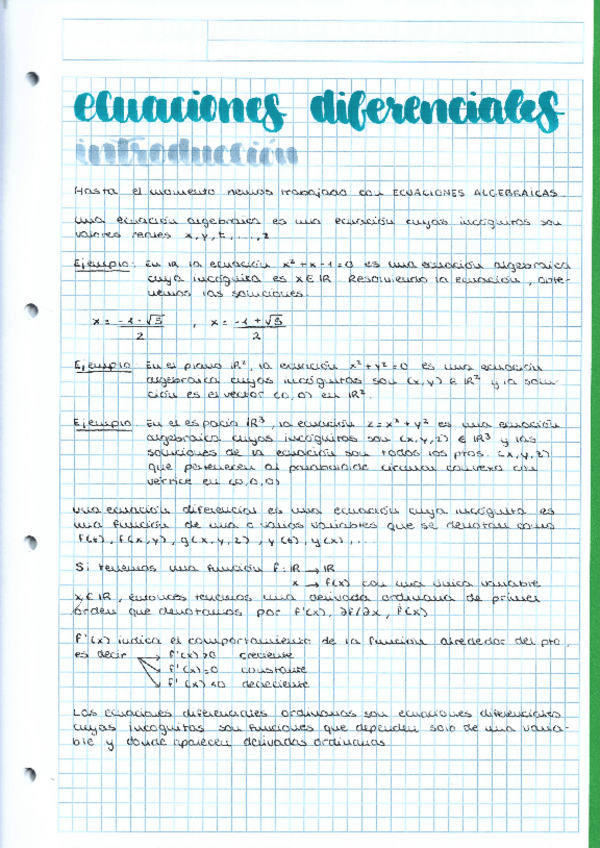 ecuaciones diferenciales
introducción
Hasta el momento hemos trabajado con ECUACIONES ALGEBRAICAS
una ecuación algebraica es una ecuación cuyas incógnitas son
valores reales x, y, t, ..., z
Ejemplo: En IR la ecuación x² + x - 1 = 0 es una ecuación algebraica
cuya incógnita es x ∈ IR Resolviendo la ecuación, obte-
nemos las soluciones.
x = (-1 - √5)/2 , x = (-1 + √5)/2
Ejemplo En el plano IR², la ecuación x² + y² = 0 es una ecuación
algebraica cuyas incógnitas son (x, y) ∈ IR² y la solu-
ción es el vector (0, 0) en IR².
Ejemplo En el espacio IR³, la ecuación z = x² + y² es una ecuación
algebraica cuyas incógnitas son (x, y, z) ∈ IR³ y las
soluciones de la ecuación son todos los ptos. (x, y, z)
que pertenecen al paraboloide circular convexo con
vértice en (0, 0, 0)
una ecuación diferencial es una ecuación cuya incógnita es
una función de una o varias variables que se denotan como
f(t), f(x, y), g(x, y, z), y(t), y(x), ...
Si tenemos una función f: IR → IR
x → f(x) con una única variable
x ∈ IR, entonces tenemos una derivada ordinaria de primer
orden que denotamos por f'(x), ∂f/∂x, ḟ(x)
f'(x) indica el comportamiento de la función alrededor del pto,
es decir → f'(x) > 0 creciente
f'(x) = 0 constante
f'(x) < 0 decreciente
Las ecuaciones diferenciales ordinarias son ecuaciones diferenciales
cuyas incógnitas son funciones que dependen solo de una varia-
ble y donde aparecen derivadas ordinarias